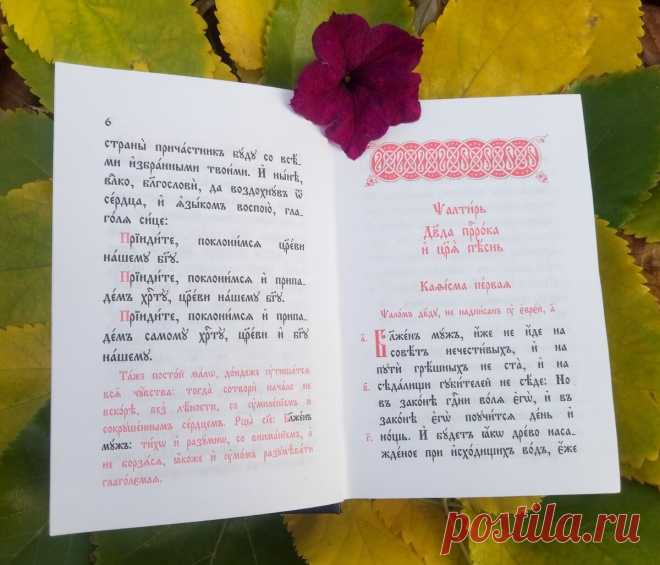 6
страны̀ прича́стникъ бꙋ́дꙋ со всѣ́-
ми и҆збра́нными твои́ми. И҆ ны́нѣ,
влⷣко, бл҃гословѝ, да воздохнꙋ́въ ѿ
се́рдца, и҆ ѧ҆зы́комъ воспою̀, гла-
го́лѧ си́це:
Прїиди́те, поклони́мсѧ цр҃е́ви
на́шемꙋ бг҃ꙋ.
Прїиди́те, поклони́мсѧ и҆ припа-
де́мъ хрⷭ҇тꙋ̀, цр҃е́ви на́шемꙋ бг҃ꙋ.
Прїиди́те, поклони́мсѧ и҆ припа-
де́мъ самомꙋ̀ хрⷭ҇тꙋ̀, цр҃е́ви и҆ бг҃ꙋ
на́шемꙋ.
Та́же посто́й ма́лѡ, до́ндеже ᲂу҆тиша́тсѧ
всѧ̑ чꙋ̑вства: тогда̀ сотворѝ нача́ло не
вско́рѣ, без̾ лѣ́ности, со ᲂу҆миле́нїемъ и҆
сокрꙋше́ннымъ се́рдцемъ. Рцы̀ сїѐ: Бл҃же́нъ
мꙋ́жъ: ти́хѡ и҆ разꙋ́мнѡ, со внима́нїемъ, а҆
не борзѧ́сѧ, ꙗ҆́коже и҆ ᲂу҆мо́мъ разꙋмѣва́ти
глаго́лемаѧ.
Ѱалти́рь
Дв҃да прⷪ҇ро́ка
и҆ цр҃ѧ̀ пѣ́снь
Каѳі́сма пе́рваѧ
Ѱало́мъ дв҃дꙋ, не надпи́санъ ᲂу҆ є҆вре́й, а҃
а҃. Бл҃же́нъ мꙋ́жъ, и҆́же не и҆́де на
совѣ́тъ нечести́выхъ, и҆ на
пꙋтѝ грѣ́шныхъ не ста̀, и҆ на
в҃. сѣда́лищи гꙋби́телей не сѣ́де: Но
въ зако́нѣ гдⷭ҇ни во́лѧ є҆гѡ̀, и҆ въ
зако́нѣ є҆гѡ̀ поꙋчи́тсѧ де́нь и҆
г҃. но́щь. И҆ бꙋ́детъ ꙗ҆́кѡ дре́во наса-
жде́ное при и҆схо́дищихъ во́дъ, є҆́же
postila.ru